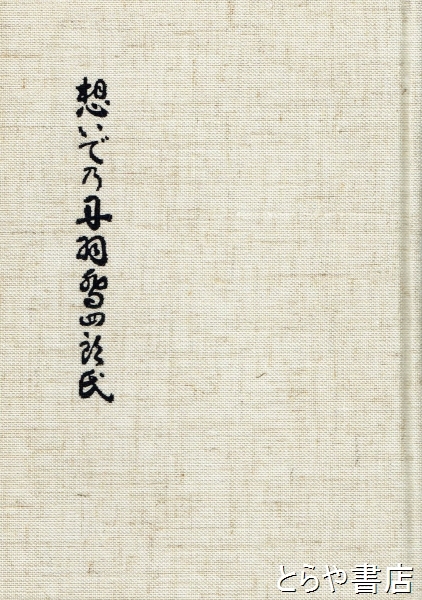 想いでの丹羽鼎四郎氏
とらや書店